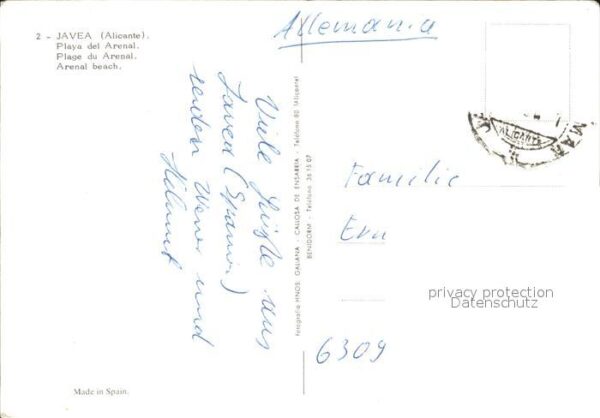 2 - JAVEA (Alicante).
Playa del Arenal.
Plage du Arenal.
Arenal beach.
Allemania
Viele Grüße aus
Javea (Spanien)
senden Werner und
Helmut
Fotografia HNOS. GALIANA - CALLOSA DE ENSARRIA - Teléfono 80 (Alicante)
BENIDORM - Teléfono 36 15 07
ALICANTE
Familie
Ern
privacy protection
Datenschutz
6309
Made in Spain.